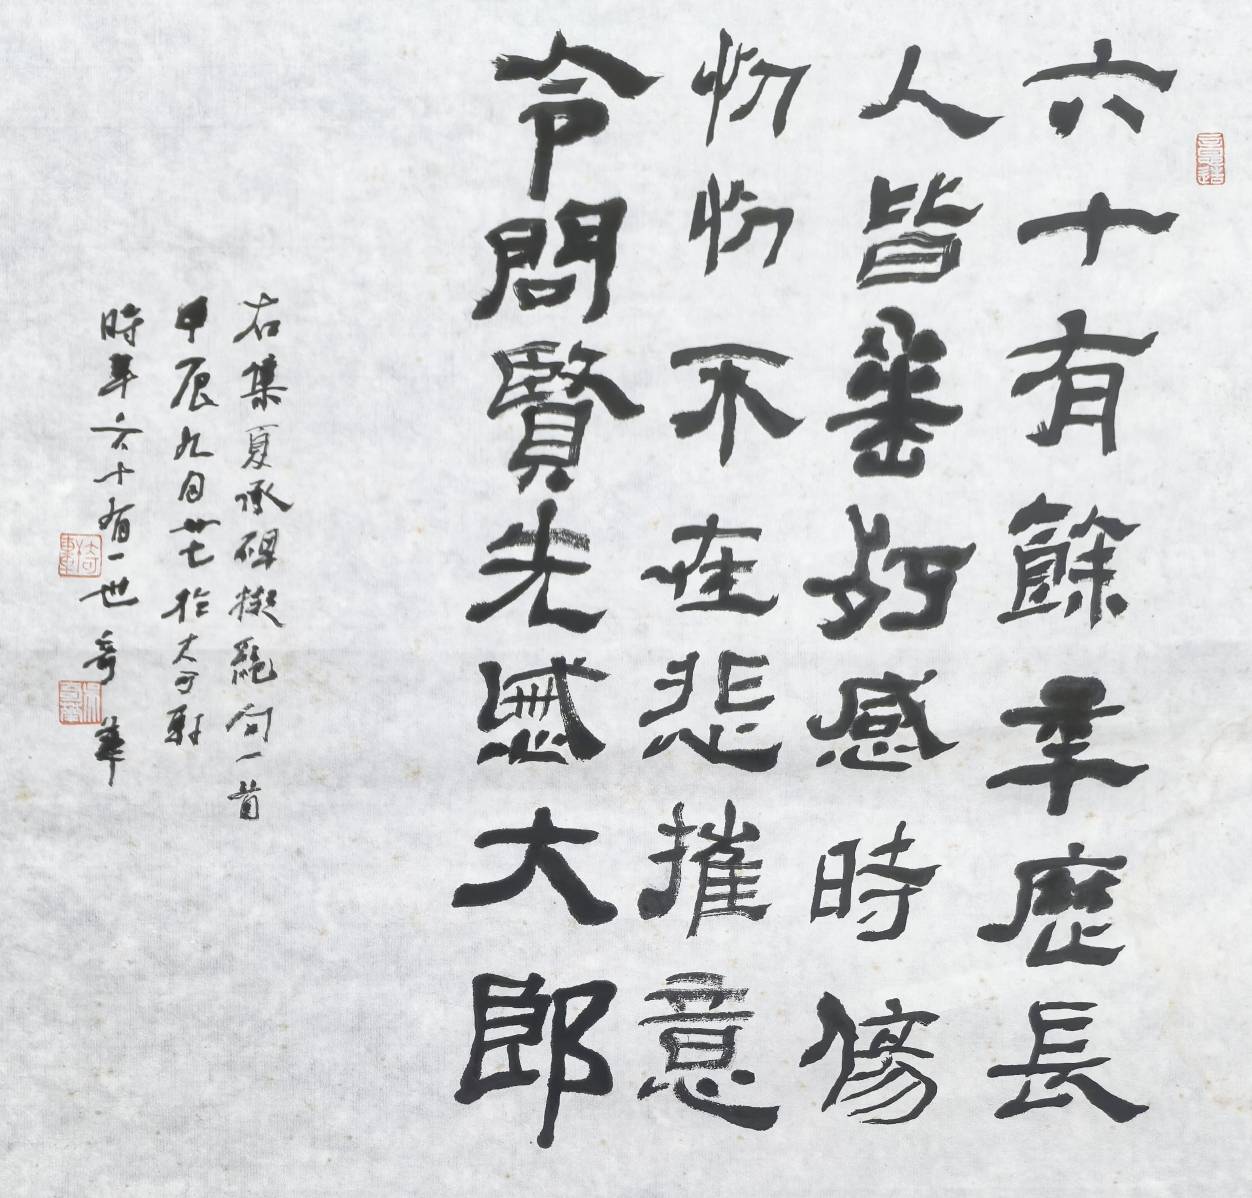 六十有餘羣歷長
人皆垂㱙感時傷
忉忉不在悲摧意
令問賢先大郎
右集夏承碑擬絕句一首
甲辰九月廿七於大可軒
時年六十有一也奇華